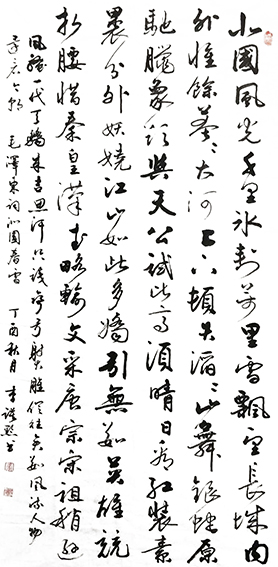 北國風光千里冰封萬里雪飄望長城內
外惟餘莽々大河上下頓失滔々山舞銀蛇原
馳臘象欲與天公試比高須晴日看紅裝素
裹分外妖嬈江山如此多嬌引無數英雄競
折腰惜秦皇漢武略輸文采唐宗宋祖稍遜
風騷一代天驕成吉思汗只識彎弓射雕俱往矣數風流人物
還看今朝 毛澤東詞沁園春雪 丁酉秋月 李 書